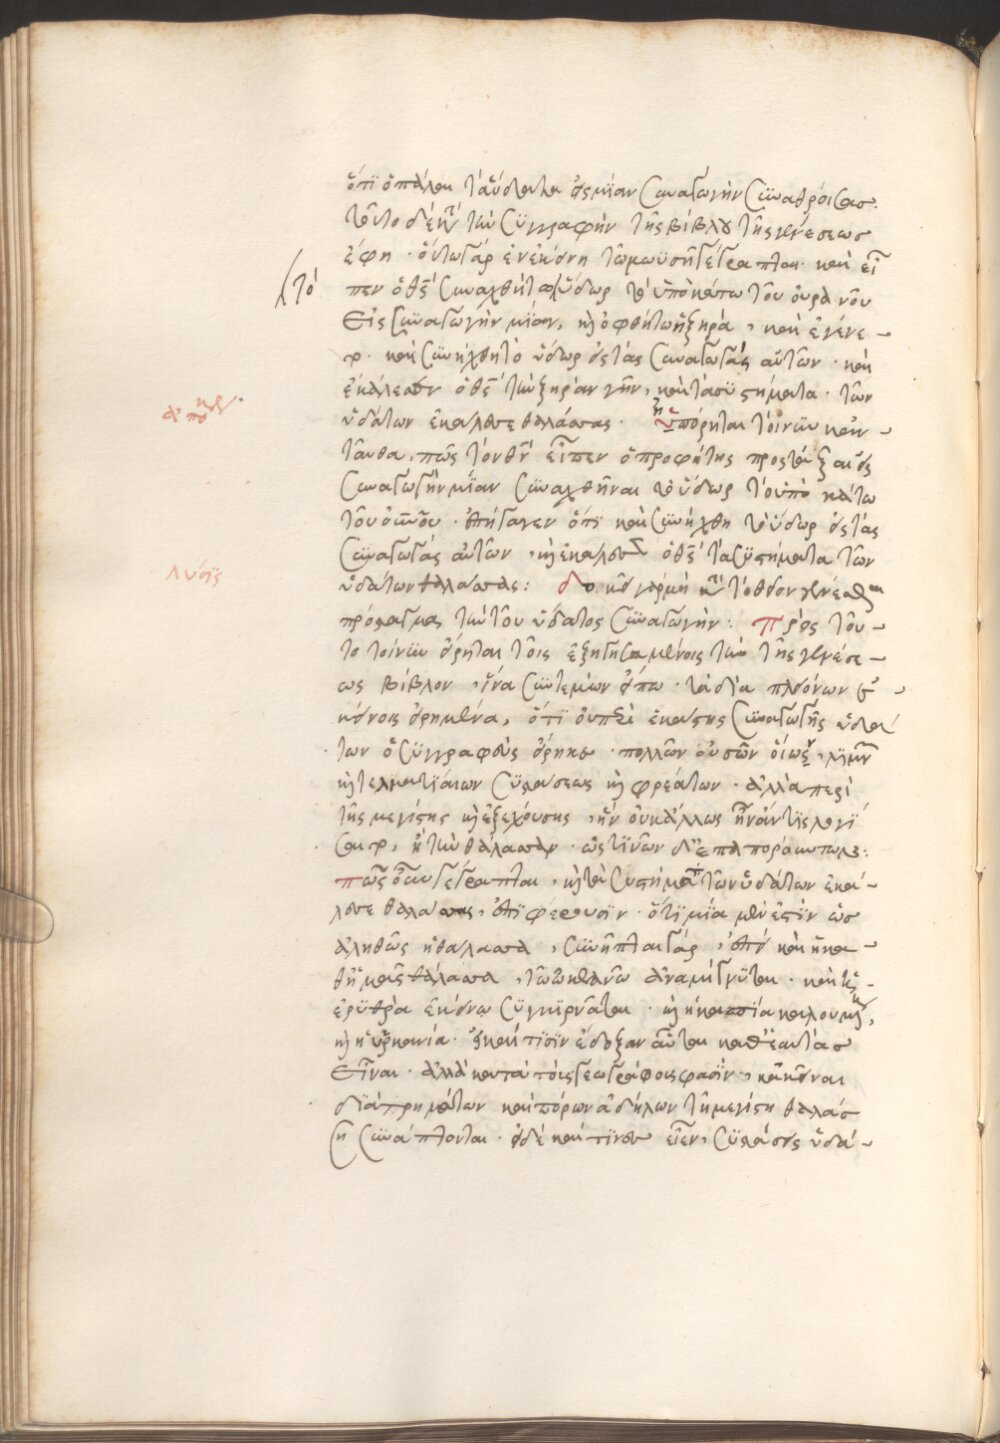 ὅτι ὁ πάλαι τὰ ὕδατα εἰς μίαν συναγωγὴν συναθροίσας.
τοῦτο δὲ κατὰ τὴν συγγραφὴν τῆς βίβλου τῆς γενέσεως
ἔφη · οὕτω γὰρ ἐν ἐκείνη τῶ μωϋσῆ γέγραπται · καὶ εἶ
πεν ὁ θς συναχθήτω τὸ ὕδωρ τὸ ὑποκάτω τοῦ οὐρανοῦ
εἰς συναγωγὴν μίαν, καὶ ὀφθήτω ἡ ξηρά, καὶ ἐγένε-
το · καὶ συνήχθη τὸ ὕδωρ εἰς τὰς συναγωγὰς αὐτῶν · καὶ
ἐκάλεσεν ὁ θς τὴν ξηρὰν γῆν, καὶ τὰ συστήματα τῶν
ὑδάτων ἐκάλεσε θαλάσσας · ἠπόρηται τοίνυν κἀν-
ταῦθα, πῶς τὸν θν εἶπεν ὁ προφήτης προστάξαι εἰς
συναγωγὴν μίαν συναχθῆναι τὸ ὕδωρ τὸ ὑποκάτω
τοῦ οὐνοῦ · ἐπήγαγεν ὅτι καὶ συνήχθη τὸ ὕδωρ εἰς τὰς
συναγωγὰς αὐτῶν, καὶ ἐκάλεσεν ὁ θς τὰ συστήματα τῶν
ὑδάτων θαλάσσας : δοκεῖ γὰρ μὴ κατὰ τὸ θεῖον γενέσθαι
πρόσταγμα τὴν τοῦ ὕδατος συναγωγήν : πρὸς τοῦ-
το τοίνυν εἴρηται τοῖς ἐξηγησαμένοις τὴν τῆς γενέσε-
ως βίβλον, ἵνα συντεμὼν εἴπω τὰ διὰ πλειόνων
κείνοις εἰρημένα, ὅτι οὐ περὶ ἑκάστης συναγωγῆς ὑδά
των ὁ συγγραφεὺς εἴρηκε · πολλῶν οὐσῶν οἴως, λιμνῶν
καὶ τελματιαίων συστάσεως καὶ φρεάτων · ἀλλὰ περὶ
τῆς μεγίστης καὶ ἐξεχούσης, ἣν οὐκ ἄλλως ἦν ἄν τις λογί
σαιτο, ἢ τὴν θάλασσαν ·
πῶς οὖν γέγραπται, καὶ τὰ συστήματα τῶν ὑδάτων ἐκά-
λεσε θαλάσσας, ἐπιφέρουσιν · ὅτι μία μέν ἐστιν ὡς
ἀληθῶς ἡ θάλασσα, συνῆπται γὰρ, ἐπεὶ καὶ ἡ κα-
θ' ἡμᾶς θάλασσα, τῶ ὠκεανῶ ἀναμίγνυται · καὶ ἡ
ἐρυθρὰ ἐκείνω συγκιρνᾶται · καὶ ἡ κασπία καλουμένη,
καὶ ἡ ὑρκανία · εἰ καί τισιν ἔδοξαν αὗται καθ' ἑαυτὰς
εἶναι · ἀλλὰ κατὰ τοῖς γεωγράφοις φασὶν, κἀκεῖναι
διὰ τρημάτων καὶ πόρων ἀδήλων τῆ μεγίστη θαλάσ
ση συνάπτονται · εἰ δὲ καί τινες εἶεν, συστάσεις ὑδά-
τὸ
λύσις